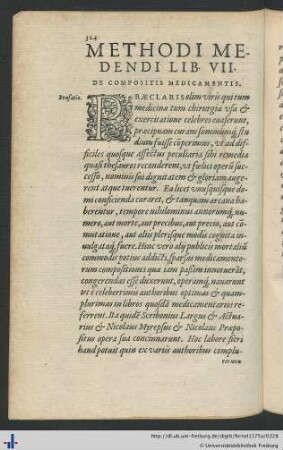 324
METHODI ME-
DENDI LIB. VII.
DE COMPOSITIS MEDICAMENTIS.
Præfatio.
PRÆCLARIS olim viris qui tum
medicinæ tum chirurgiæ vsu &
exercitatione celebres euaserunt,
præcipuam curam summúmq; stu
dium fuisse comperimus, vt ad dif-
ficiles quosque affectus peculiaria sibi remedia
quasi thesauros reconderent, vt fœlici operū suc-
cessu, nominis sui dignitatem & gloriam auge-
rent atque tuerentur. Ea licet vnusquisque do-
mi conficienda curaret, & tanquam arcana ha-
berentur, tempore nihilominus autorumq; nu-
mero, aut morte, aut precibus, aut precio, aut cō-
mutatione, aut aliis plerisque modis cognita in-
uulgatáq; fuere. Hinc vero alij publicis mortaliū
commodis potius addicti, sparsas medicamento-
rum compositiones quæ iam passim innotuerāt,
congerendas esse duxerunt, operamq; nauarunt
vt è celeberrimis authoribus optimas & quam-
plurimas in libros quosdā medicamentarios re-
ferrent. Ita quidē Scribonius Largus & Actua-
rius & Nicolaus Myrepsus & Nicolaus Præpo-
situs opera sua concinnarunt. Hoc labore fieri
haud potuit quin ex variis authoribus complu-
rimum
http://dl.ub.uni-freiburg.de/diglit/fernel1575a/0328
© Universitätsbibliothek Freiburg